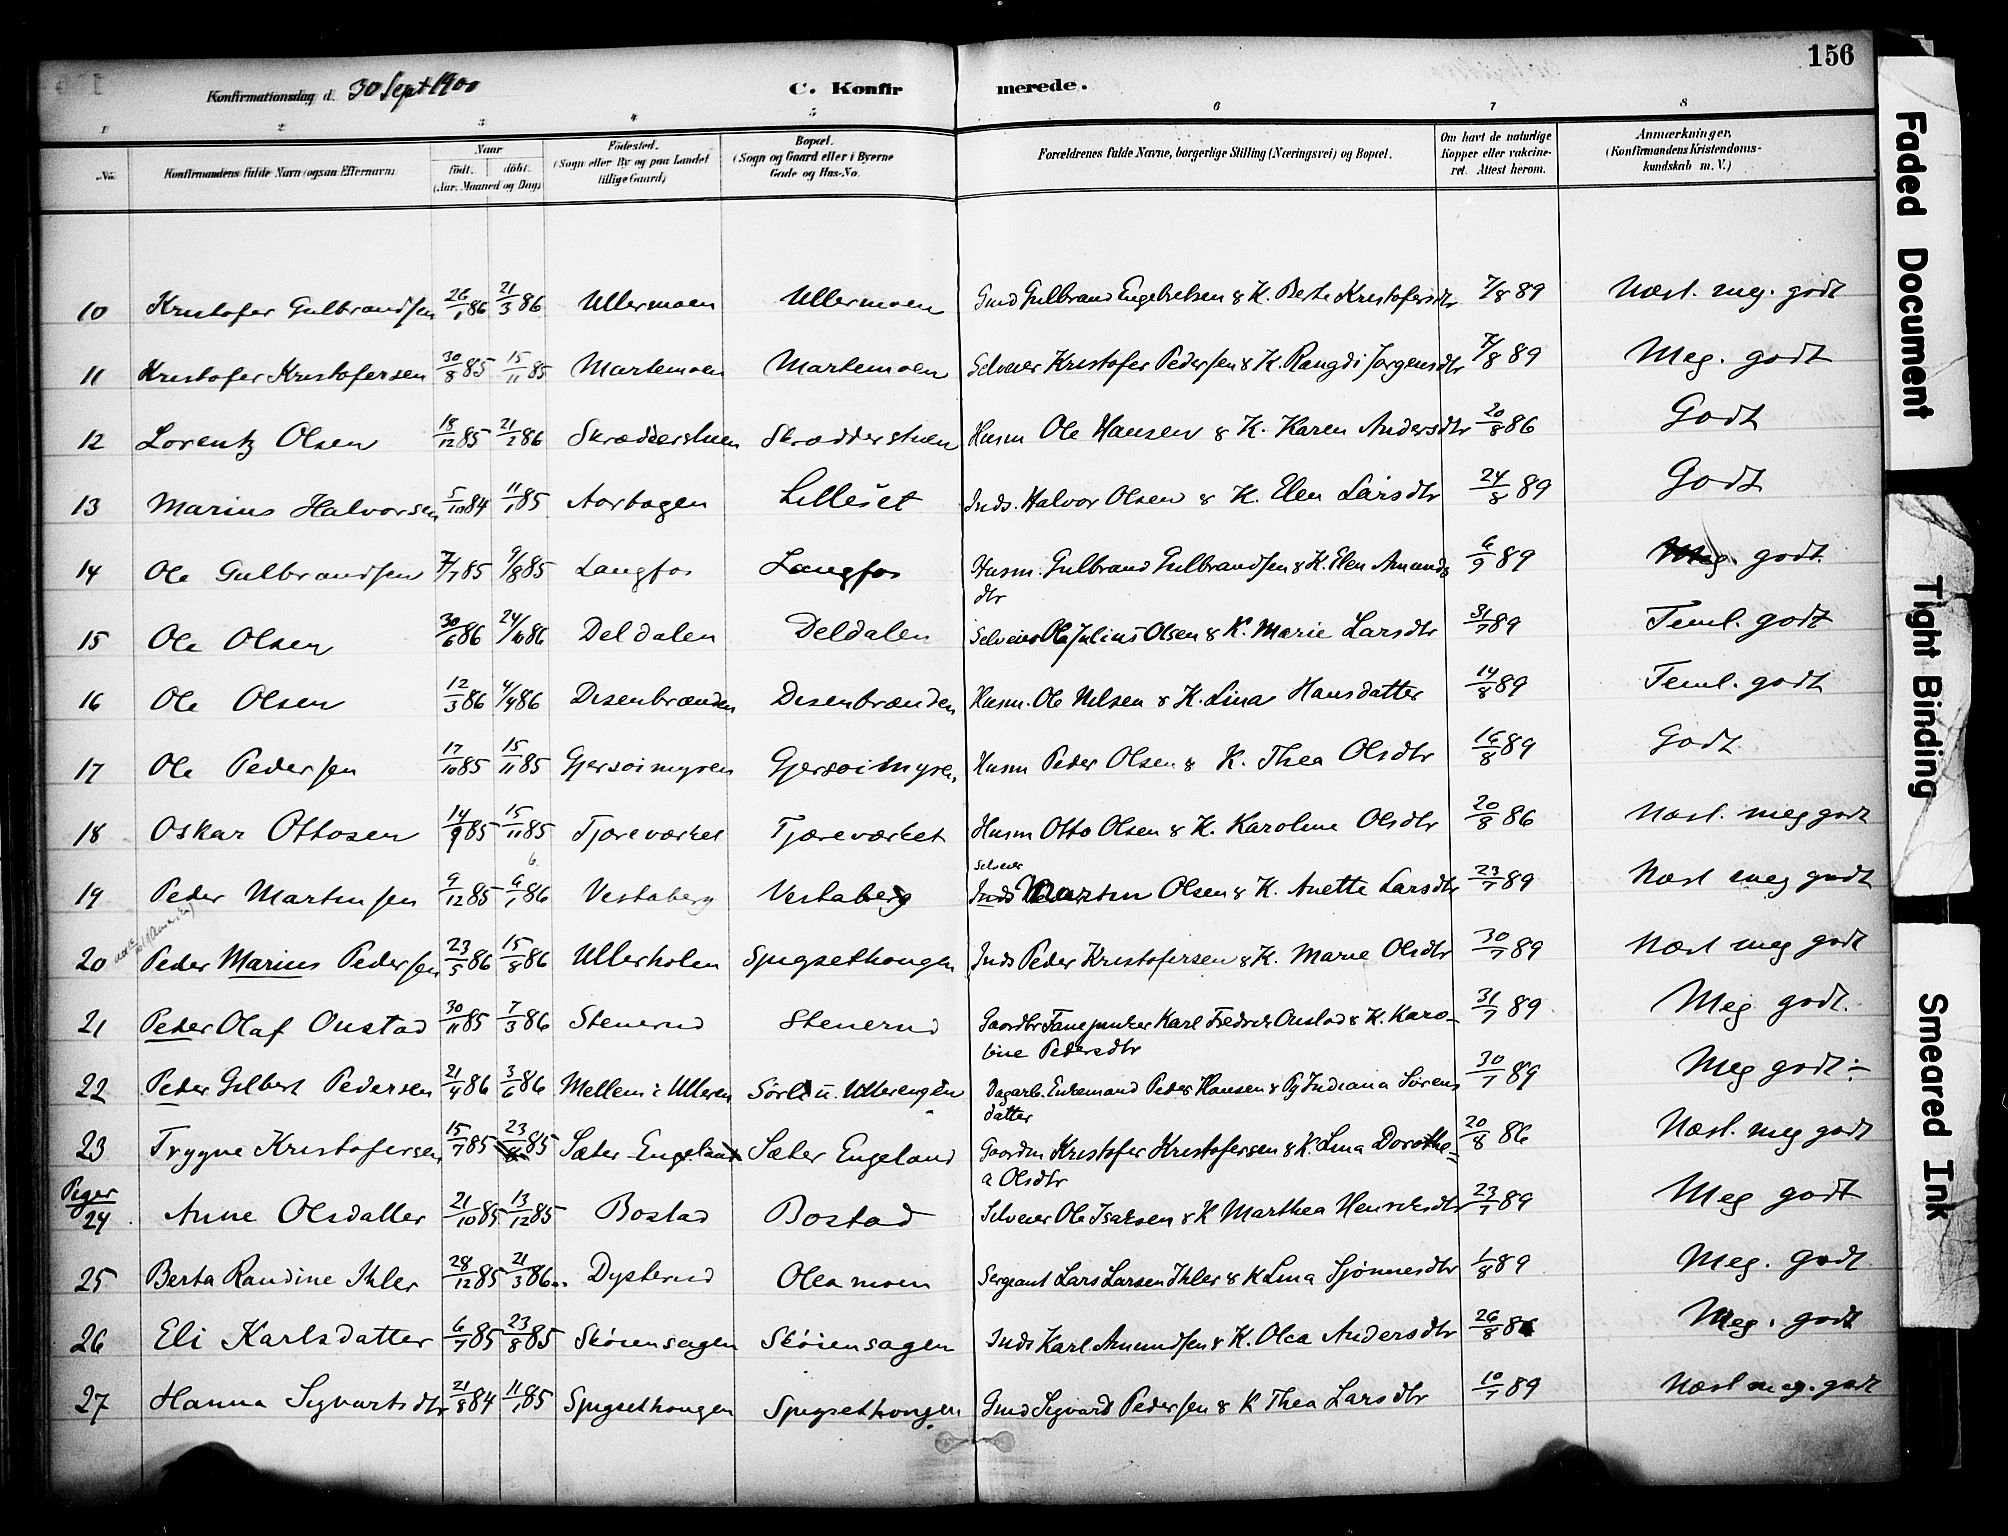 156
Konfirmationsdag d. 30 Sept 1900 C. Konfirmerede.
1 2 3 4 5 6 7 8
No. Konfirmandens fulde Navn (ogsaa Efternavn) Naar födt. döbt. (Aar, Maaned og Dag) Födested. (Sogn eller By og paa Landet tillige Gaard) Bopæl. (Sogn og Gaard eller i Byerne Gade og Hus-No. Forældrenes fulde Navne, borgerlige Stilling (Næringsvei) og Bopæl. Om havt de naturlige Kopper eller vakcineret. Attest herom. Anmærkninger, (Konfirmandens Kristendomskundskab m. V.)
10 Kristofer Gulbrandsen 26/1 86 21/3 86 Ullermoen Ullermoen Gmd Gulbrand Engebretsen & K. Berte Kristofersdtr 7/8 89 Næst. meg. godt
11 Kristofer Kristofersen 30/8 85 15/11 85 Martemoen Martemoen Selveier Kristofer Pedersen & K. Rangdi Jørgensdtr 7/8 89 Meg. godt
12 Lorentz Olsen 18/12 85 21/2 86 Skrædderstuen Skrædderstuen Husm Ole Hansen & K. Karen Andersdtr 20/8 86 Godt
13 Marius Halvorsen 5/10 84 11/1 85 Aorbogen Lilleset Inds. Halvor Olsen & K. Elen Larsdtr 24/8 89 Godt
14 Ole Gulbrandsen 7/7 85 9/8 85 Langfos Langfos Husm. Gulbrand Gulbrandsen & K. Elen Amunds
dtr 6/9 89 Meg. godt.
15 Ole Olsen 30/6 86 24/10 86 Deldalen Deldalen Selveier Ole Julius Olsen & K. Marie Larsdtr 31/7 89 Teml. godt
16 Ole Olsen 12/3 86 4/4 86 Disenbrænden Disenbrænden Husm. Ole Nilsen & K. Lina Hansdatter 14/8 89 Teml. godt
17 Ole Pedersen 17/10 85 15/11 85 Gjersøimyren Gjersøimyren Husm Peder Olsen & K. Thea Olsdtr 16/8 89 Godt
18 Oskar Ottosen 14/9 85 15/11 85 Tjæreværket Tjæreværket Husm Otto Olsen & K. Karoline Olsdtr 20/8 86 Næst. meg godt
6.
Selveier
19 Peder Martinsen 9/12 85 6/1 86 Vestaberg Vestaberg Inds Martin Olsen & K. Anette Larsdtr 23/7 89 Næst meg godt
20 Peder Marius Pedersen 23/5 86 15/8 86 Ullerholen Spigsethougen Inds Peder Kristofersen & K. Marie Olsdtr 30/7 89 Næst meg godt
21 Peder Olaf Onstad 30/11 85 7/3 86 Stenerud Stenerud Gaardbr Fanejunker Karl Fredrik Onstad & K. Karo-
line Pedersdtr 31/7 89 Meg godt.
22 Peder Gilbert Pedersen 21/4 86 3/6 86 Mellem i Ulleren Sörli u. Ullerengen Dagarb. Enkemand Peder Hansen & Pg Indiana Sørens
datter 30/7 89 Meg godt ÷
23 Trygve Kristofersen 15/7 85 23/8 85 Sæter Engeland Sæter Engeland Gaardm Kristofer Kristofersen & K. Lina Dorothe=
a Olsdtr 20/8 86 Næst. meg godt
Piger
24 Anne Olsdatter 21/10 85 13/12 85 Bostad Bostad Selveier Ole Isaksen & K Marthea Henriksdtr 23/7 89 Meg godt
25 Berta Randine Ihler 28/12 85 21/3 86 Dysterud Olea moen Sergeant Lars Larsen Ihler & K Lina Sjønnesdtr 1/8 89 Meg. godt
26 Eli Karlsdatter 6/7 85 23/8 85 Skøiensagen Skøiensagen Inds Karl Amundsen & K. Olea Andersdtr 26/8 86 Meg. godt
27 Hanna Sigvartsdtr 21/8 84 11/1 85 Spigsethougen Spigsethougen Gmd Sigvard Pedersen & K Thea Larsdtr 10/7 89 Næst meg. godt
Faded Document
Tight Binding
Smeared Ink